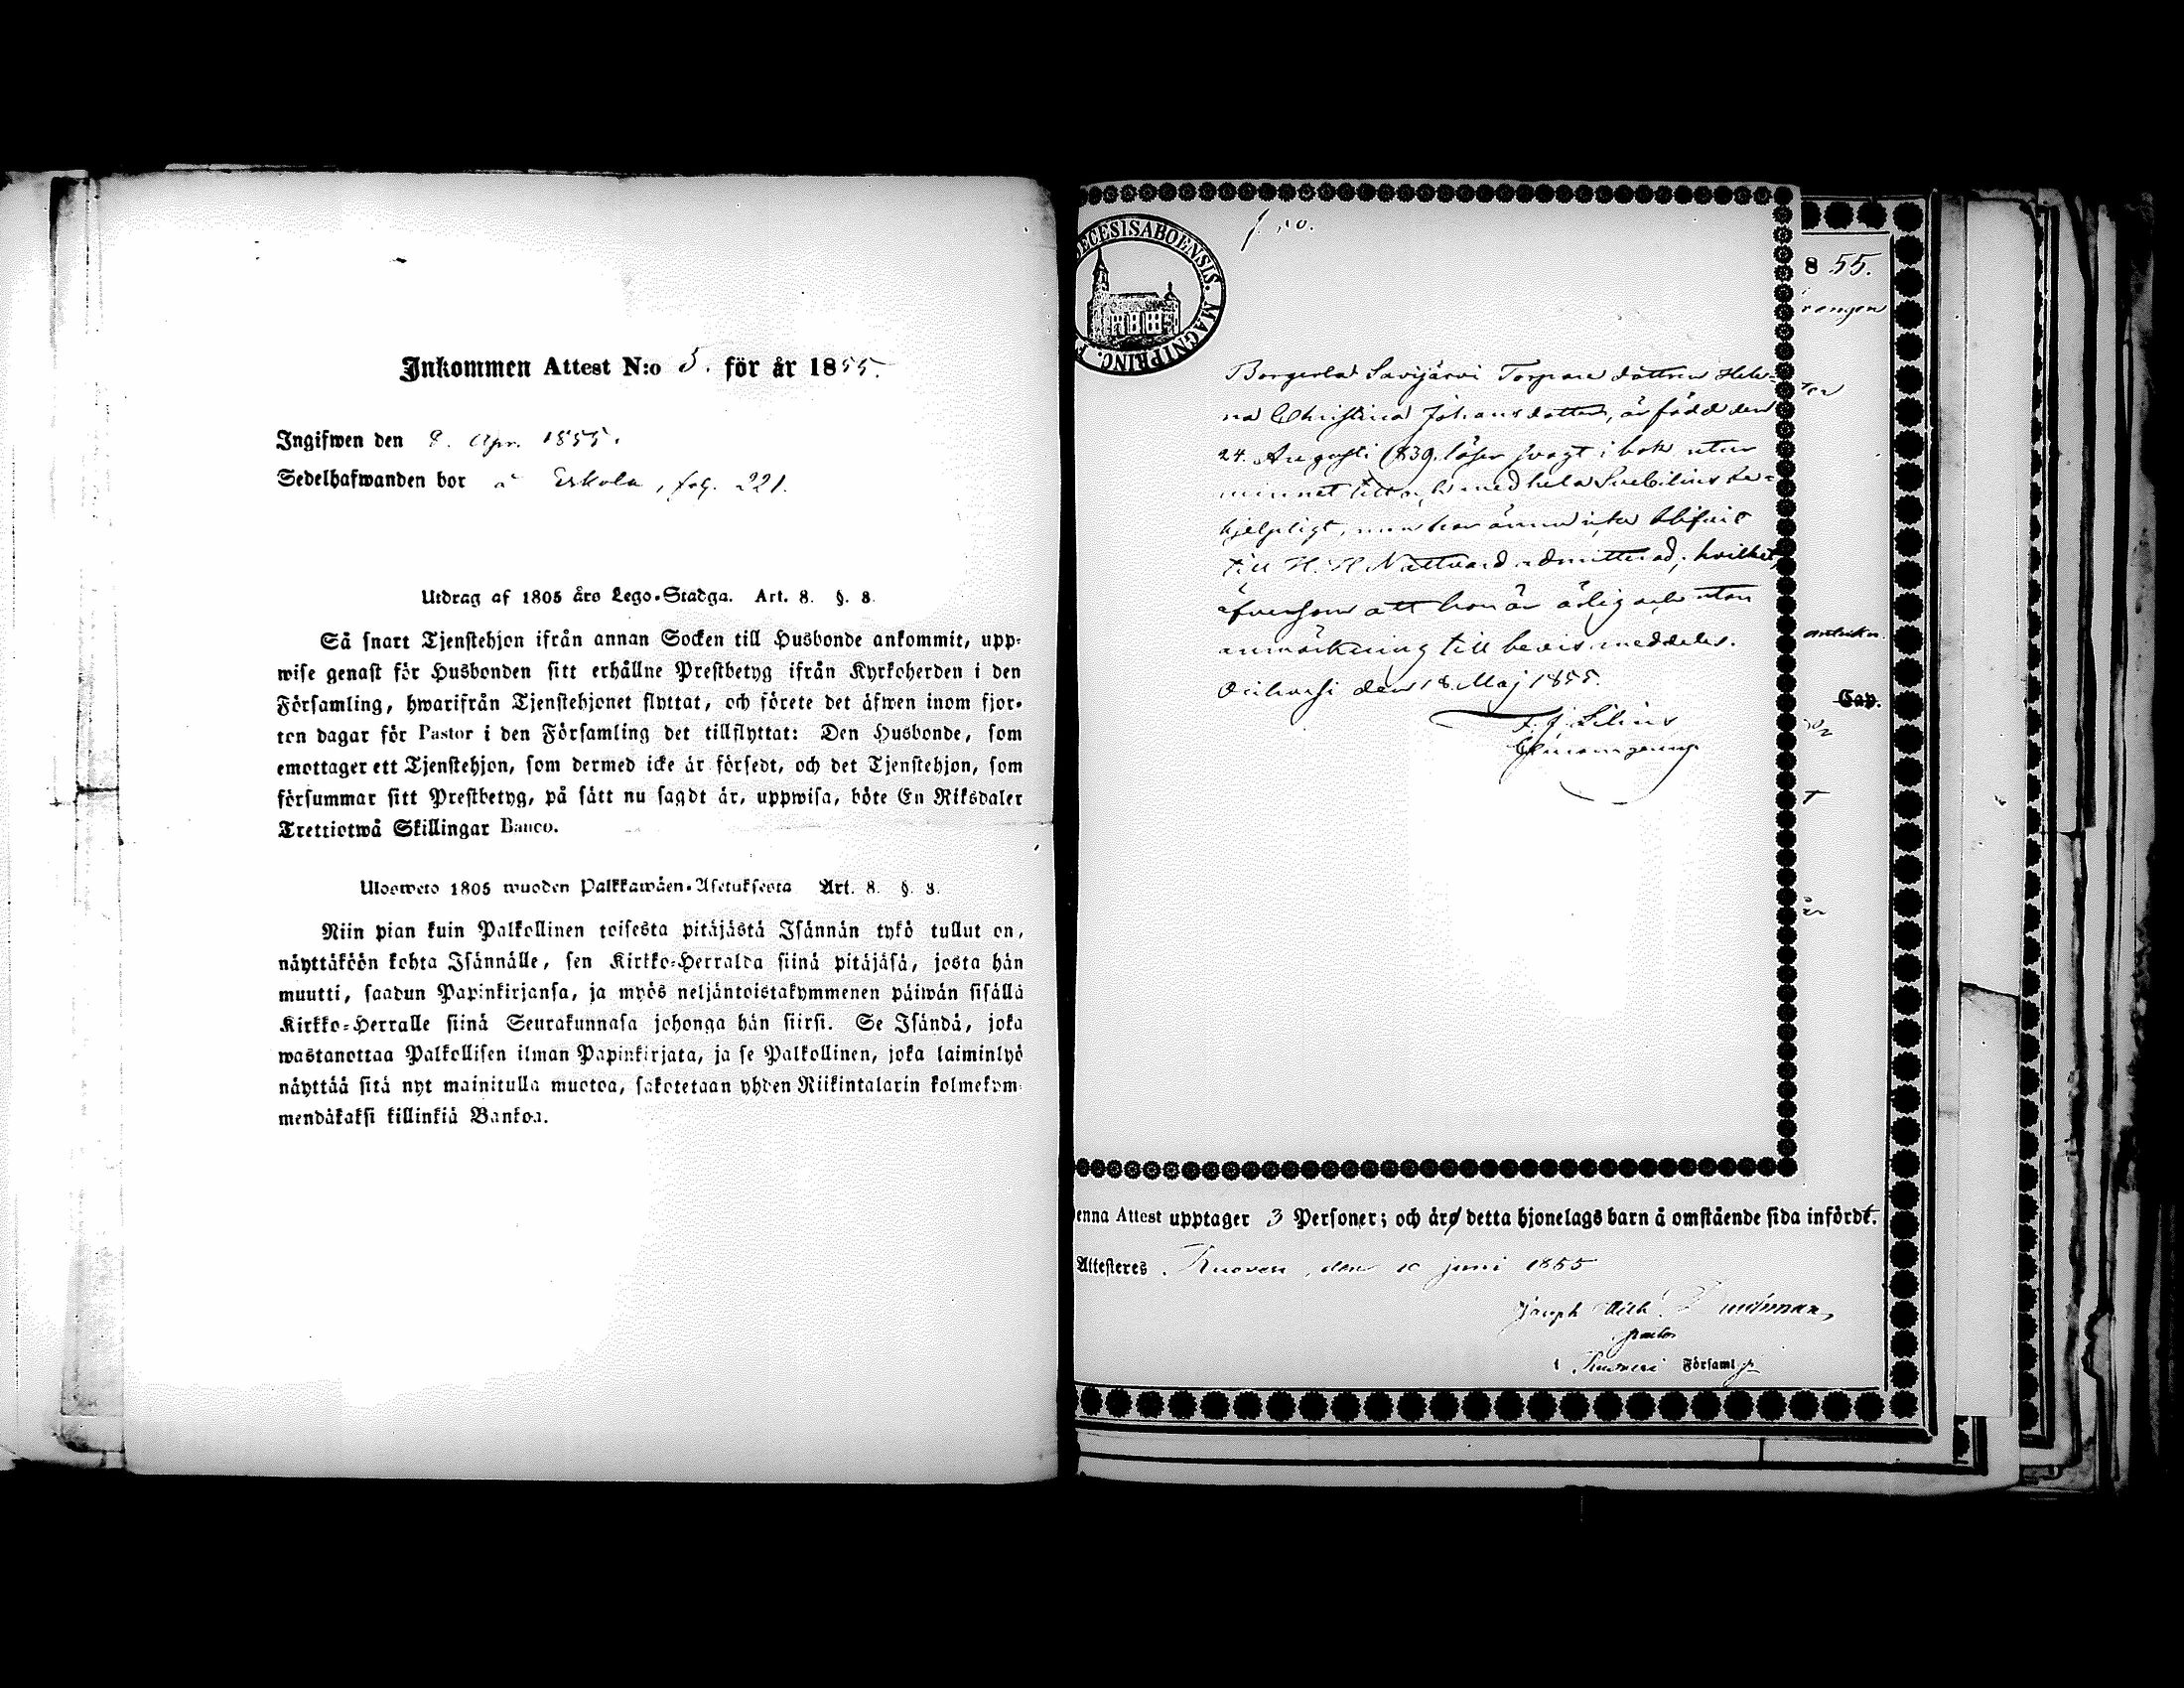 Inkommen Attest N:o 5. för år 1855.
Ingifwen den 9. Apr. 1855.
Sedelhafwanden bor å Eskola, fog. 221.
Utdrag af 1805 års Lego-Stadga. Art. 8. §. 8.
Så snart Tjenstehjon ifrån annan Socken till Husbonde ankommit, upp-
wise genast för Husbonden sitt erhållne Prestbetyg ifrån Kyrkoherden i den
Församling, hwarifrån Tjenstehjonet flyttat, och förete det äfwen inom fjor-
ton dagar för Pastor i den Församling det tillflyttat: Den Husbonde, som
emottager ett Tjenstehjon, som dermed icke är försedt, och det Tjenstehjon, som
försummar sitt Prestbetyg, på sätt nu sagdt är, uppwisa, böte En Riksdaler
Trettiotwå Skillingar Banco.
Ulosweto 1805 wuoden Palkkawäen-Asetuksesta Art. 8. §. 8.
Niin pian kuin Palkollinen toisesta pitäjästä Isännän tykö tullut on,
näyttäköön kohta Isännälle, sen Kirkko-Herralda siinä pitäjäsä, josta hän
muutti, saadun Papinkirjansa, ja myös neljäntoistakymmenen päiwän sisällä
Kirkko-Herralle siinä Seurakunnasa johonga hän siirsi. Se Isändä, joka
wastanottaa Palkollisen ilman Papinkirjata, ja se Palkollinen, joka laiminlyö
näyttää sitä nyt mainitulla muotoa, sakotetaan yhden Riikintalarin kolmekym-
mendäkaksi killinkiä Bankoa.
DECESIS ABOENSIS. MAGNI PRINC. F
Borgerla Savijärvi Torpare dottren Hele-
na Christina Johansdotter, är född den
24. Augusti 1839. läser svagt i bok utur
minnet med hela Svebilius be-
hjelpligt, men har ännu icke blifvit
till H. H. Nattvard admitterad; hvilket,
äfvensom att hon är ärlig och utan
anmärkning till bevis meddeles.
den 18. Maj 1855.
F. J. Lilius
8 55.
rengen
Cap.
är
enna Attest upptager 3 Personer; och äro detta hjonelags barn å omstående sida infördt.
Attesteres Kuovesi, den 10 juni 1855
Joseph Wilh.
pastor
i Församl